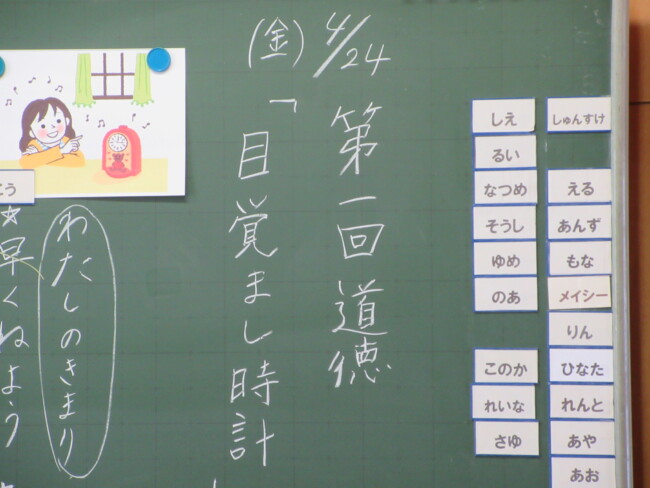 4/24
(金)
第一回道徳
「目覚まし時計
わたしのきまり
☆早くねよう
しゅんすけ
える
あんず
もな
メイシー
りん
ひなた
れんと
あや
あお
しえ
るい
なつめ
そうし
ゆめ
のあ
このか
れいな
さゆ